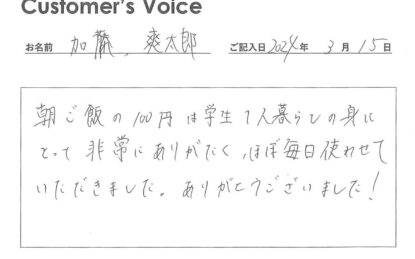 Customer's Voice
お名前 加藤 爽太郎 ご記入日 2024年 3月 15日
朝ご飯の100円は学生1人暮らしの身に
とって非常にありがたく、ほぼ毎日使わせて
いただきました。ありがとうございました!